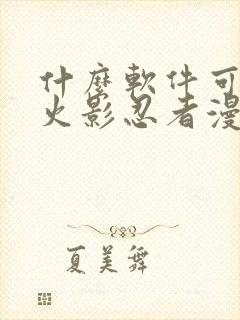 什麼軟件可
火影忍者漫
夏美舞